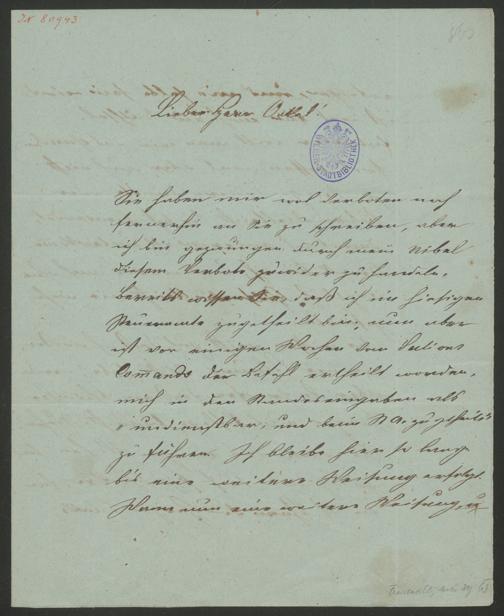 IN 80943
Lieber Herr
WIENER STADTBIBLIOTHEK
Sie haben mir wol verboten noch
fernerhin an Sie zu schreiben, aber
ich bin gezwungen durch mein
diesem Verbote zuwider zu handeln.
Bereits wissen Sie, daß ich im hiesigen
Steueramte zugetheilt bin, nun aber
ist vor einigen Wochen vom
Commando der Befehl ertheilt worden,
mich in den Standeseingaben als
undienstbar, und beim zugetheilt
zu führen. Ich bleibe hier so lang
bis eine weitere Weisung erfolgt.
Wann nun eine weitere Weisung